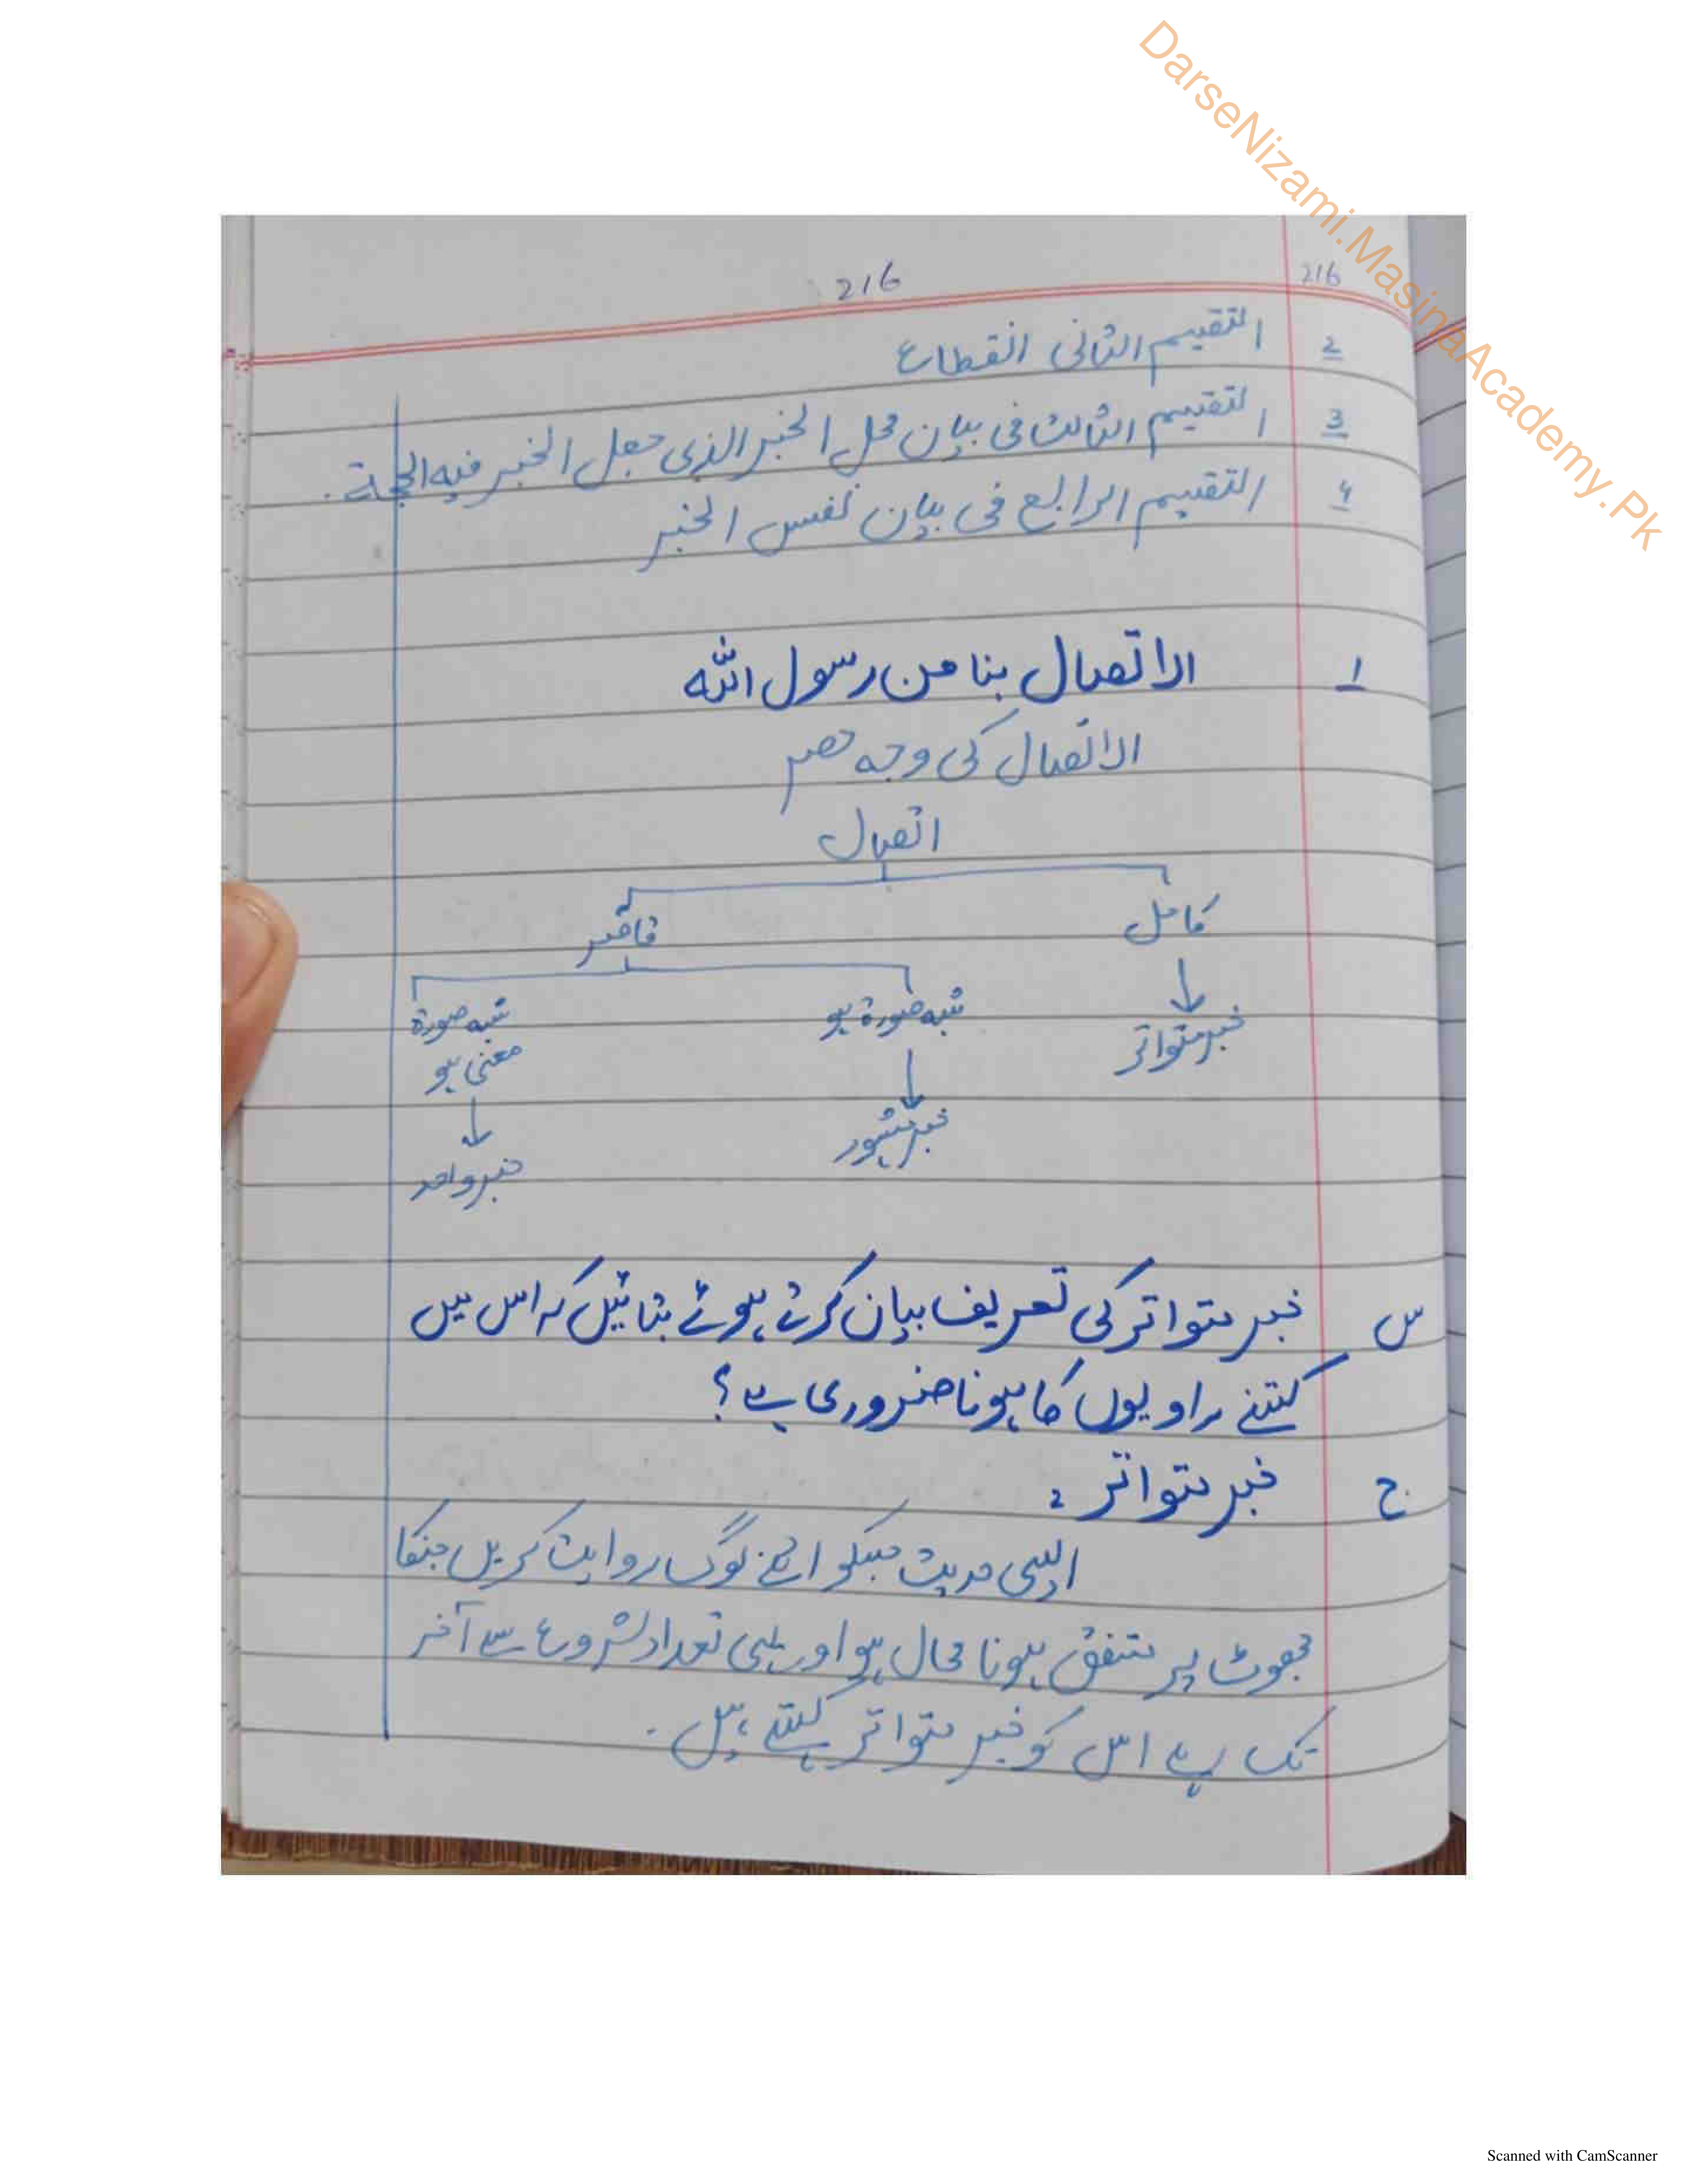 DarseNizami.MasinaAcademy.Pk
216
216
2 التقسیم الثانی انقطاع
3 التقسیم الثالث فی بیان محل الخبر الذی جعل الخبر فیہ الحجۃ۔
4 التقسیم الرابع فی بیان نفس الخبر
1 الاتصال بنا من رسول اللہ
الاتصال کی وجہ حصر
اتصال
کامل قاصر
خبر متواتر شبہ صورۃ ہو شبہ صورۃ
معنی ہو
خبر مشہور
خبر واحد
س خبر متواتر کی تعریف بیان کرتے ہوئے بتائیں کہ اس میں
کتنے راویوں کا ہونا ضروری ہے؟
ج خبر متواتر :
ایسی حدیث جسکو اتنے لوگ روایت کریں جنکا
جھوٹ پر متفق ہونا محال ہو اور یہی تعداد شروع سے آخر
تک رہے اس کو خبر متواتر کہتے ہیں۔
Scanned with CamScanner